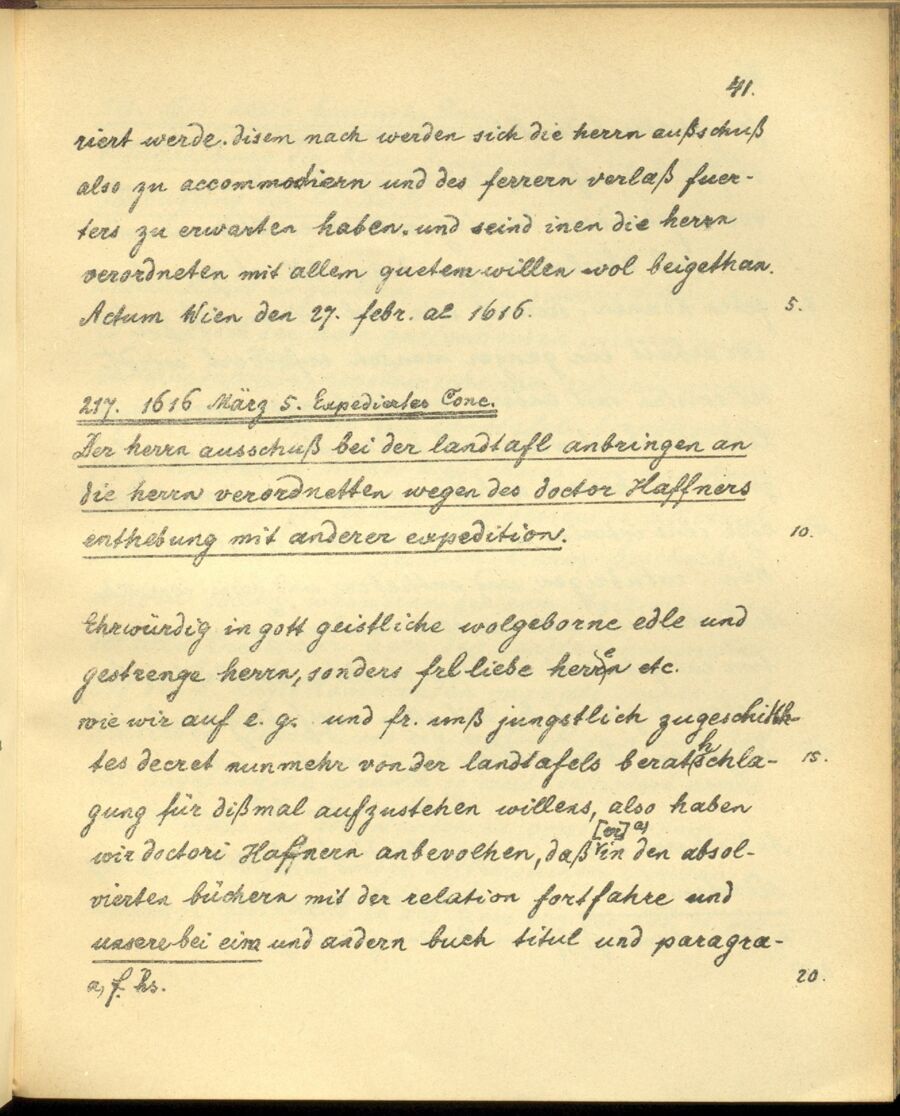 41.
riert werde. disem nach werden sich die herrn außschuß
also zu accommodiern und des ferrern verlaß fuer-
ters zu erwarten haben. und seind inen die herrn
verordneten mit allem guetem willen wol beigethan.
Actum Wien den 27. febr. ao 1616. 5.
217. 1616 März 5. Expediertes Conc.
Der herrn ausschuß bei der landtafl anbringen an
die herrn verordnetten wegen des doctor Haffners
enthebung mit anderer expedition. 10.
Ehrwürdig in gott geistliche wolgeborne edle und
gestrenge herrn, sonders frl liebe herrn etc.
wie wir auf e. g. und fr. unß jungstlich zugeschikh-
tes decret nunmehr von der landtafels berathschla- 15.
gung für dißmal aufzustehen willens, also haben
wir doctori Haffnern anbevolhen, daß [er] a) in den absol-
vierten büchern mit der relation fortfahre und
unsere bei eim und andern buch titul und paragra-
a) f. hs. 20.